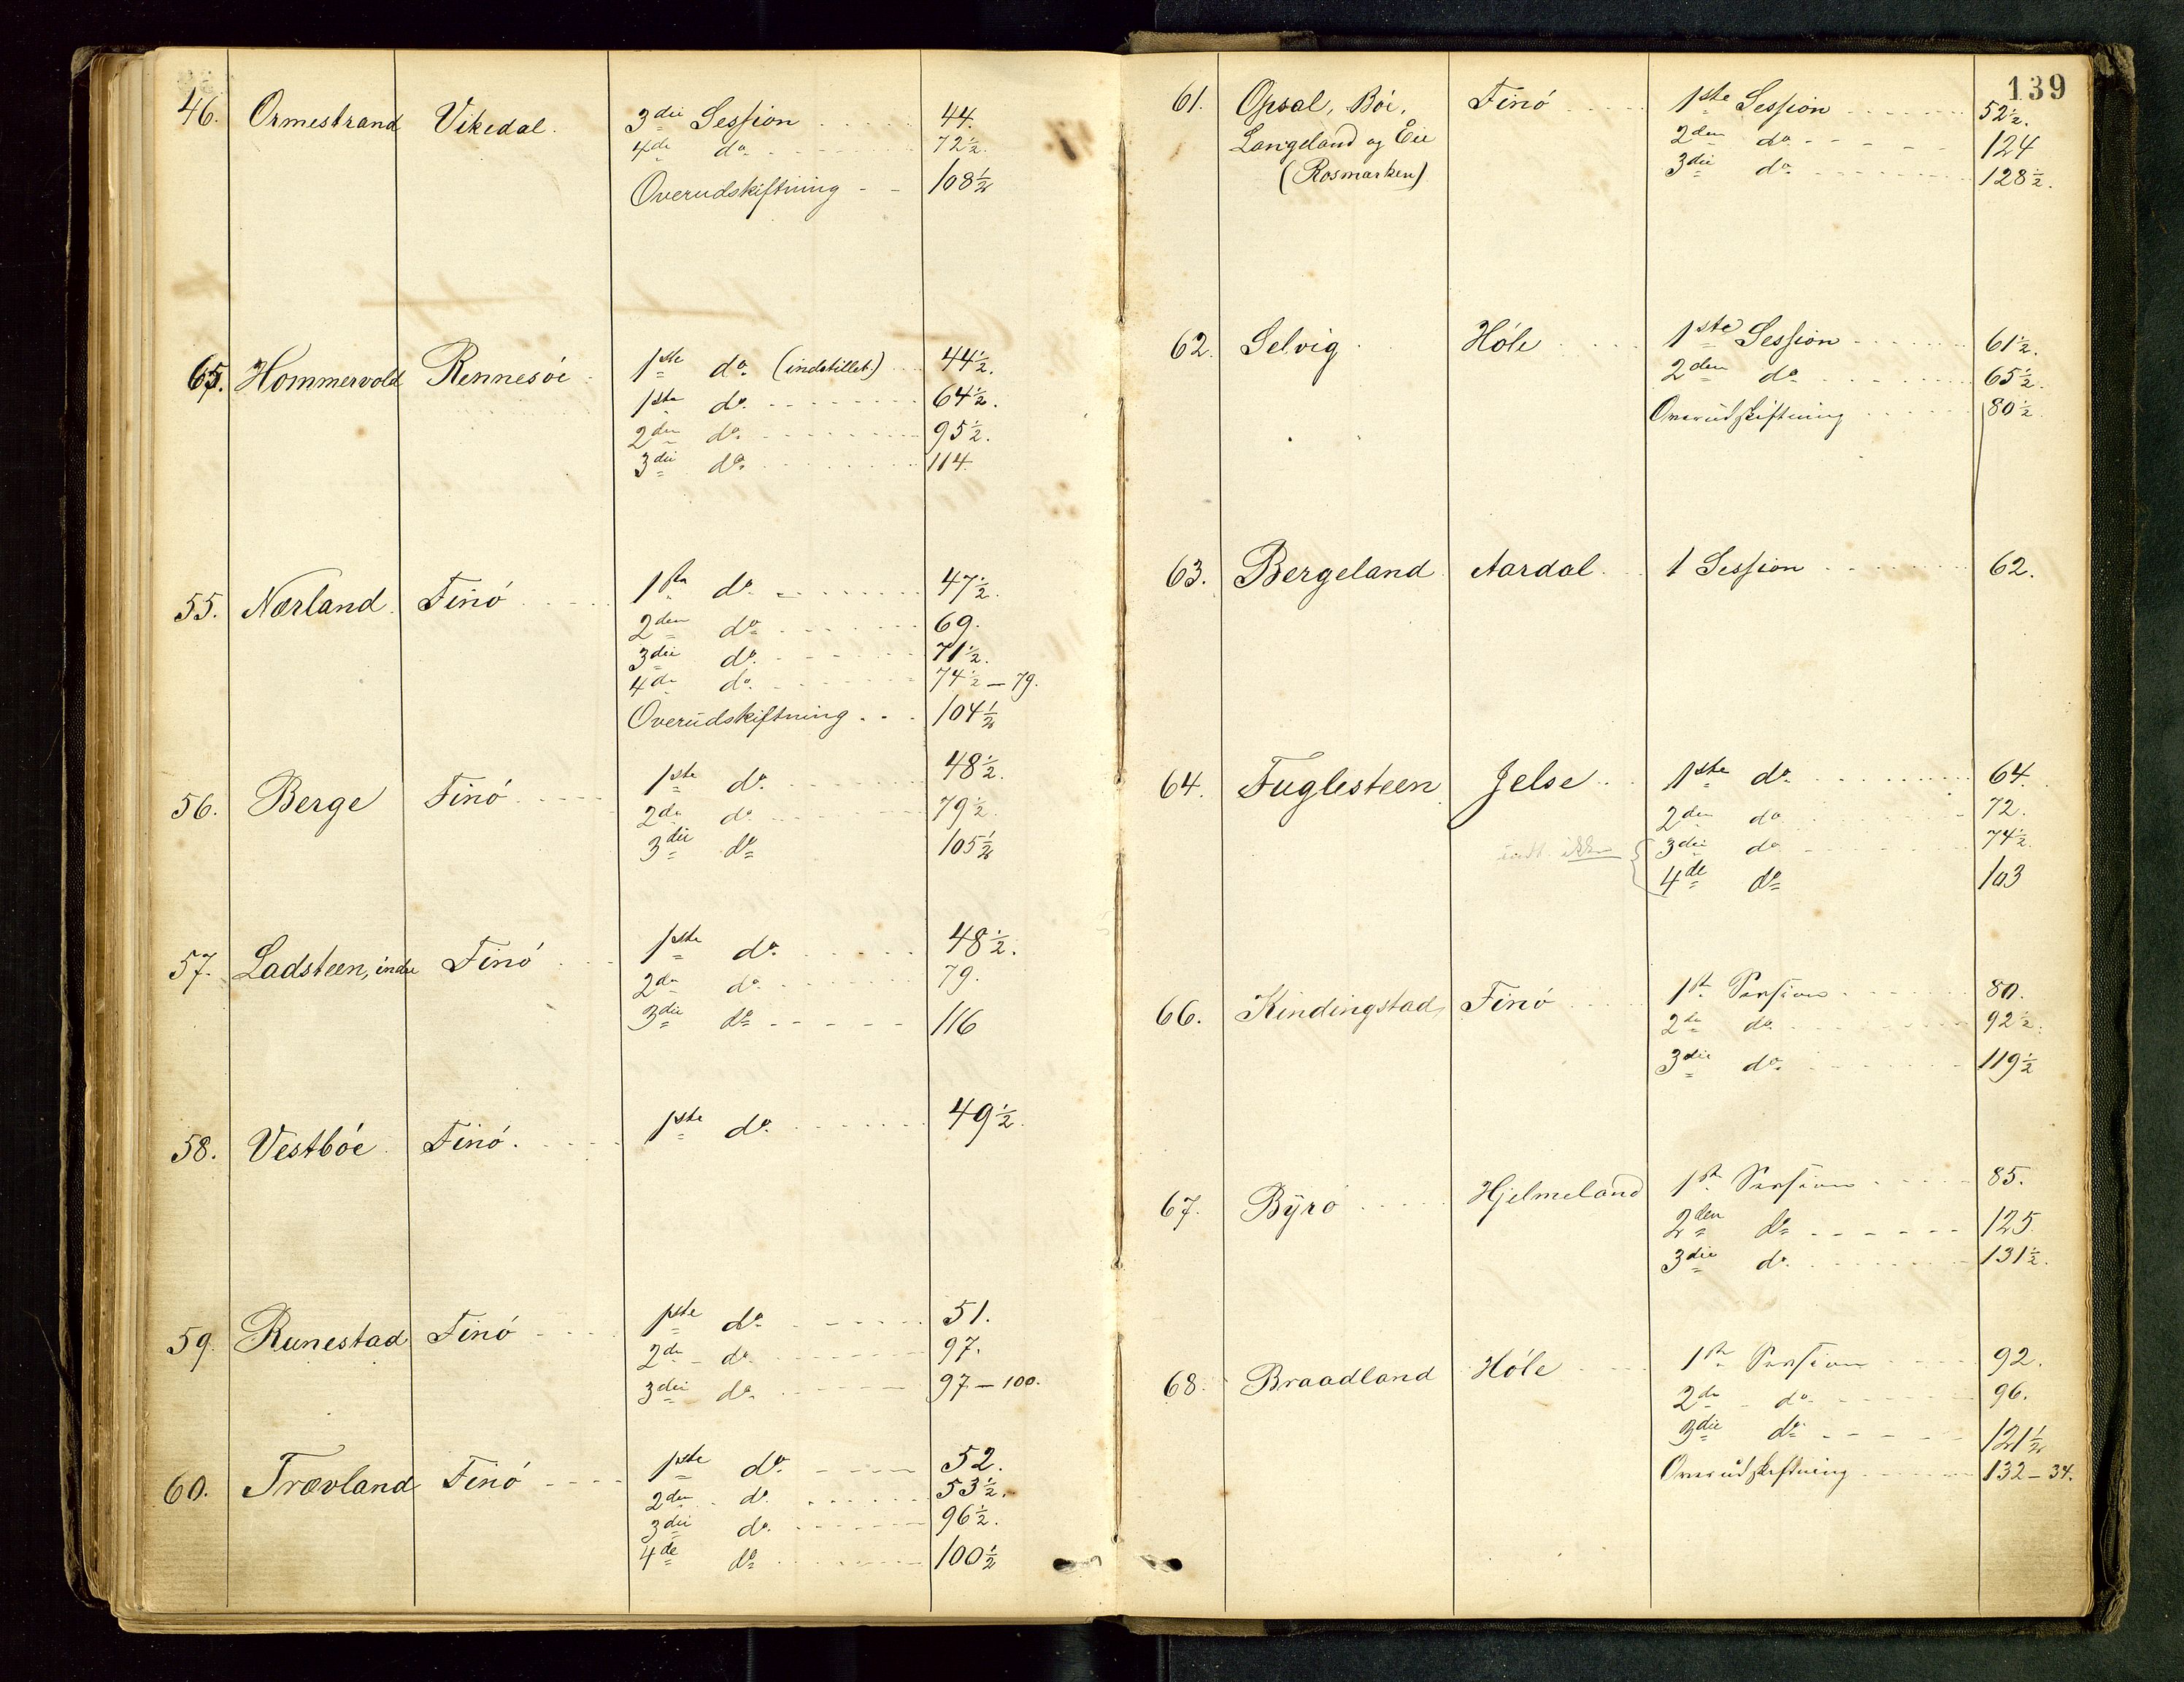 46. Ormestrand Vikedal. 3die Session 44.
4de do 72½.
Overudskiftning 108½
65. Hommervold Rennesöe 1ste do. (indstillet) 44½.
1ste do. 64½.
2den do. 95½.
3die do. 114.
55. Nærland. Finö 1ste do. 47½.
2den do. 69.
3die do. 71½.
4de do. 74½ — 79.
Overudskiftning 104½
56. Berge Finö 1ste do. 48½.
2den do. 79½.
3die do 105½
57. Ladsteen, indre Finö 1ste do. 48½.
2den do. 79.
3die do 116
58. Vestböe. Finö. 1ste do. 49½.
59. Runestad Finö 1ste do. 51.
2den do. 97.
3die do. 97 — 100.
60. Trævland Finö 1ste do. 52.
2den do. 53½.
3die do. 96½.
4de do 100½
139
61. Opsal, Böi, Finö 1ste Session 52½.
Langeland og Eie 2den do. 124
(Rosmarken) 3die do. 128½.
62. Selvig Höle 1ste Session 61½.
2den do. 65½.
Overudskiftning 80½
63. Bergeland Aardal. 1 Session 62.
64. Fuglesteen Jelse 1ste do. 64.
2den do 72.
ikke 3die do 74½.
4de do 103
66. Kindingstad Finö 1ste Session 80.
2den do. 92½.
3die do. 119½
67. Byrö Hjelmeland 1ste Session 85.
2den do 125.
3die do. 131½.
68. Braadland Höle 1ste Session 92.
2den do. 96.
3die do 121½
Overudskiftning 132 — 34.